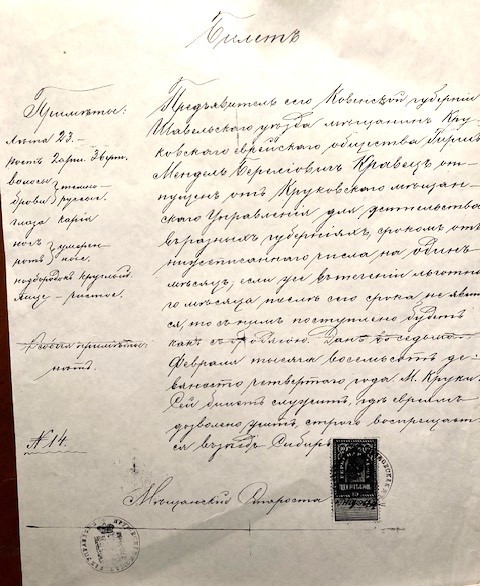 Билетъ
Примѣты:
лѣта 23. —
ростъ 2 арш. 3 верт.
волосы
брови
темно-
русые.
глаза каріе
носъ
ротъ
умѣрен-
ные.
подбородокъ круглый.
лице — чистое.
Особыя примѣты:
нѣтъ.
№ 14.
Предъявитель сего Ковенской губерніи
Шавельскаго уѣзда мѣщанинъ Кру-
ковскаго еврейскаго общества Гиршъ
Мендель Берелевичъ Кравецъ от-
пущенъ отъ Круковскаго мѣщан-
скаго Управленія для
въ разныхъ губерніяхъ, срокомъ отъ
нижеписаннаго числа на одинъ
мѣсяцъ, если же въ теченіи льготна-
го мѣсяца послѣ сего срока не явит-
ся, то съ нимъ поступлено будетъ
какъ съ бродягою. Данъ
Февраля тысяча восемьсотъ де-
вяносто четвертаго года. М. Круки.
Сей билетъ служитъ, гдѣ евреямъ
дозволено жить, строго воспрещает-
ся въѣздъ Сибирь
Мѣщанскій Староста